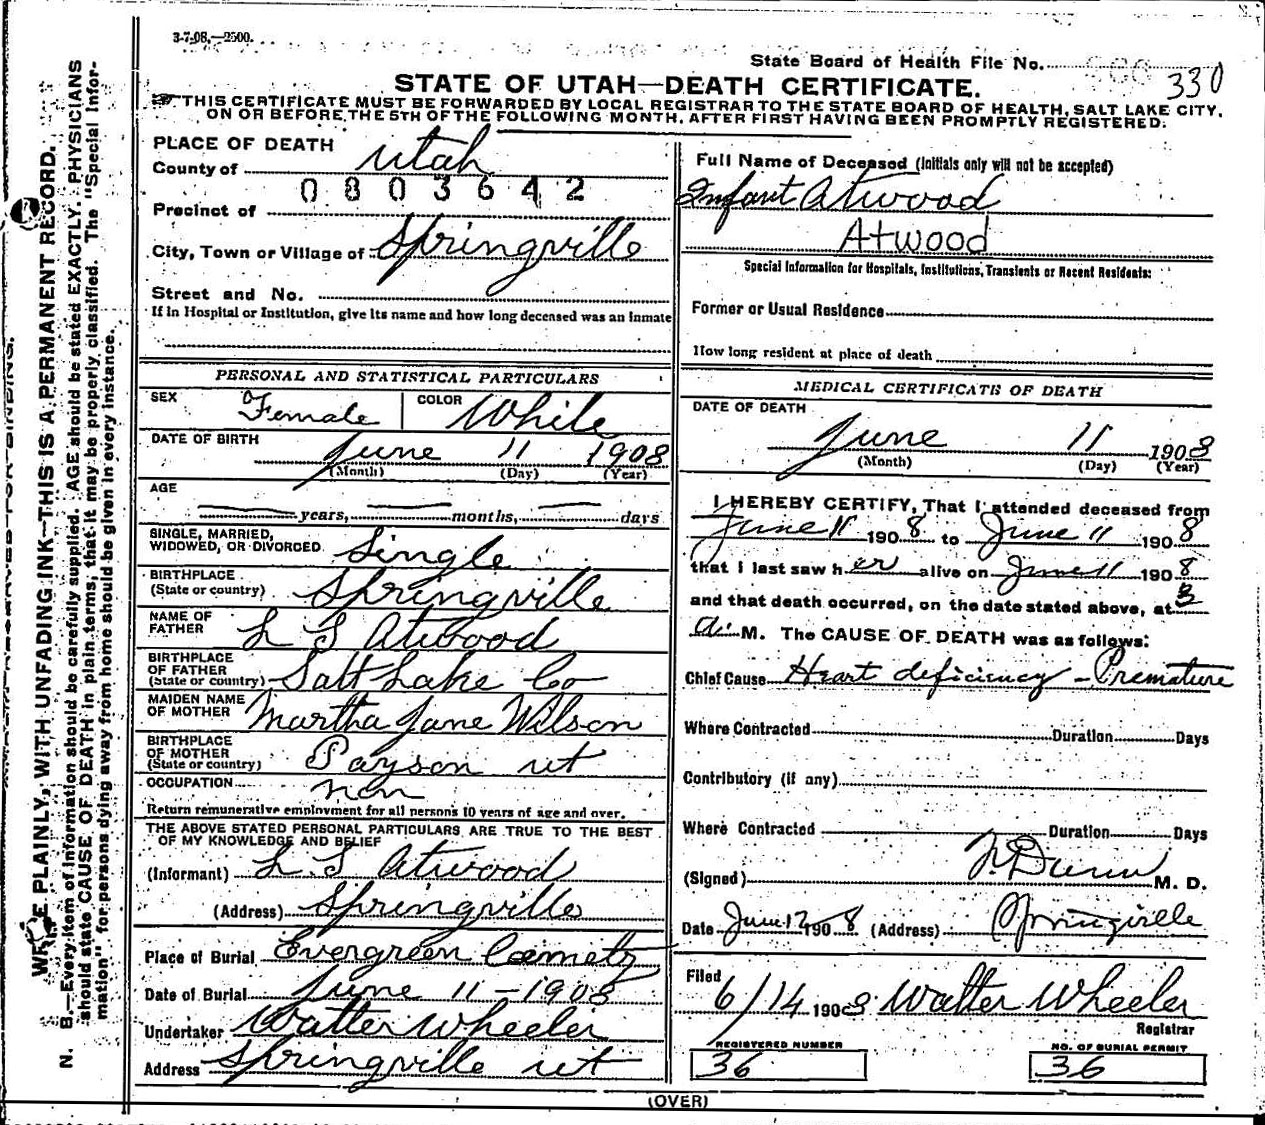 3-7-08,—2500.
State Board of Health File No. 330
STATE OF UTAH—DEATH CERTIFICATE.
THIS CERTIFICATE MUST BE FORWARDED BY LOCAL REGISTRAR TO THE STATE BOARD OF HEALTH, SALT LAKE CITY,
ON OR BEFORE THE 5TH OF THE FOLLOWING MONTH, AFTER FIRST HAVING BEEN PROMPTLY REGISTERED.
PLACE OF DEATH
County of Utah
0803642
Precinct of
City, Town or Village of Springville
Street and No.
If in Hospital or Institution, give its name and how long deceased was an inmate
PERSONAL AND STATISTICAL PARTICULARS
SEX Female COLOR White
DATE OF BIRTH
June 11 1908
(Month) (Day) (Year)
AGE
years, months, days
SINGLE, MARRIED,
WIDOWED, OR DIVORCED Single
BIRTHPLACE
(State or country) Springville
NAME OF
FATHER L S Atwood
BIRTHPLACE
OF FATHER
(State or country) Salt Lake Co
MAIDEN NAME
OF MOTHER Martha Jane Wilson
BIRTHPLACE
OF MOTHER
(State or country) Payson ut
OCCUPATION non
Return remunerative employment for all persons 10 years of age and over.
THE ABOVE STATED PERSONAL PARTICULARS ARE TRUE TO THE BEST
OF MY KNOWLEDGE AND BELIEF
(Informant) L. S Atwood
(Address) Springville
Place of Burial Evergreen Cemetry
Date of Burial June 11-1908
Undertaker Walter Wheeler
Address Springville ut
Full Name of Deceased (Initials only will not be accepted)
Infant Atwood
Atwood
Special Information for Hospitals, Institutions, Transients or Recent Residents:
Former or Usual Residence
How long resident at place of death
MEDICAL CERTIFICATE OF DEATH
DATE OF DEATH
June 11 1908
(Month) (Day) (Year)
I HEREBY CERTIFY, That I attended deceased from
June 11 1908 to June 11 1908
that I last saw her alive on June 11 1908
and that death occurred, on the date stated above, at 3
a. M. The CAUSE OF DEATH was as follows:
Chief Cause Heart deficiency - Premature
Where Contracted Duration Days
Contributory (if any)
Where Contracted Duration Days
(Signed) Dunn M. D.
Date June 12 1908 (Address) Springville
Filed
6/14 1908 Walter Wheeler
Registrar
REGISTERED NUMBER
36
NO. OF BURIAL PERMIT
36
(OVER)
PLAINLY, WITH UNFADING INK—THIS IS A PERMANENT RECORD.
N. B.—Every item of information should be carefully supplied. AGE should be stated EXACTLY. PHYSICIANS
should state CAUSE OF DEATH in plain terms, that it may be properly classified. The "Special Infor-
mation" for persons dying away from home should be given in every instance.